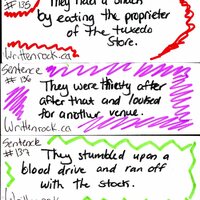 #135
They had a snack
by eating the proprieter
of the tuxedo
Store.
Writtenrock.ca
Sentence
#136
They were thirsty after
after that and looked
for another venue.
Writtenrock.ca
Sentence
#137
They stumbled upon a
blood drive and ran off
with the stock.